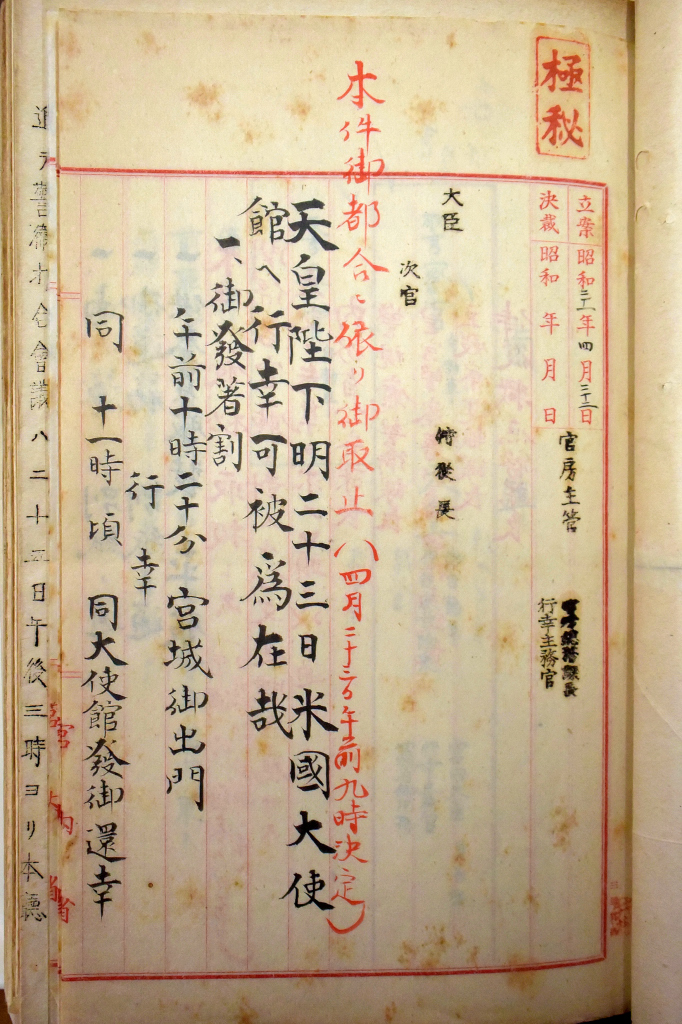 極秘
立案 昭和二十一年四月二十二日
決裁 昭和 年 月 日
官房主管
行幸主務官
大臣
次官
侍從長
本件御都合ニ依リ御取止(四月二十三日午前九時決定)
天皇陛下明二十三日米國大使
館ヘ行幸可被爲在哉
一、御發著割
午前十時二十分宮城御出門
行幸
同 十一時頃 同大使館發御還幸
宮内省
會議ハ二十五日午後三時ヨリ本廳